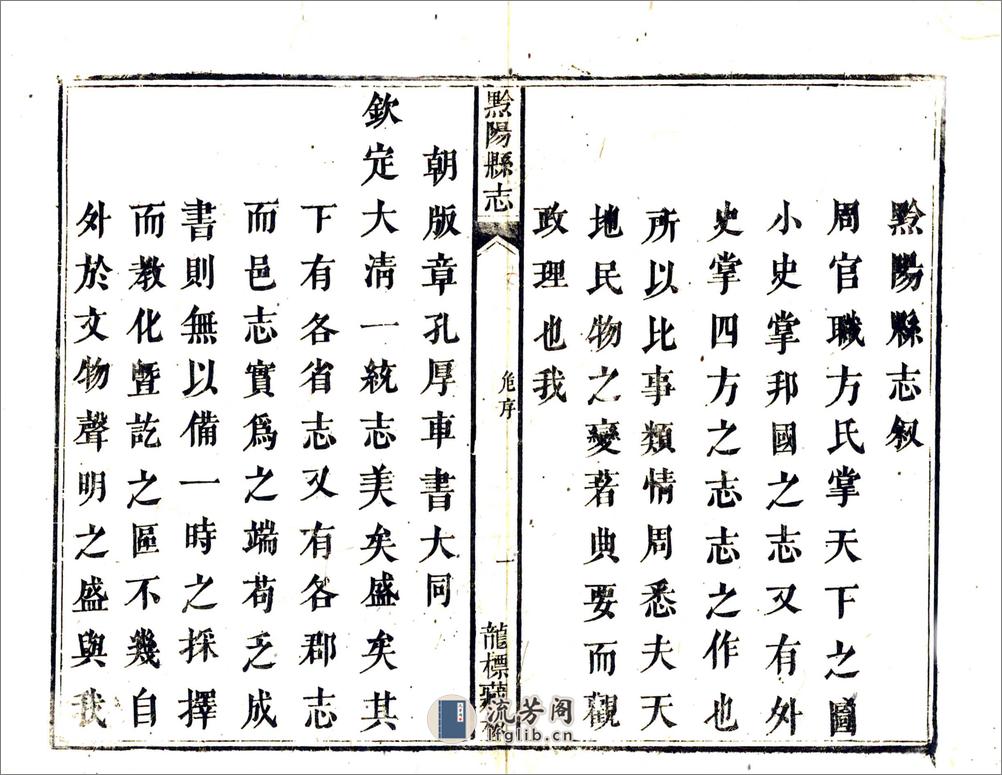 黔陽縣志叙
周官職方氏掌天下之圖
小史掌邦國之志又有外
史掌四方之志志之作也
所以比事類情周悉夫天
地民物之變若典要而觀
政理也我
黔陽縣志
危序
一
龍標
朝版章孔厚車書大同
欽定大清一統志美矣盛矣其
下有各省志又有各郡志
而邑志實爲之端苟乏成
書則無以備一時之採擇
而教化暨訖之區不幾自
外於文物聲明之盛與我
流芳阁
glib.cn